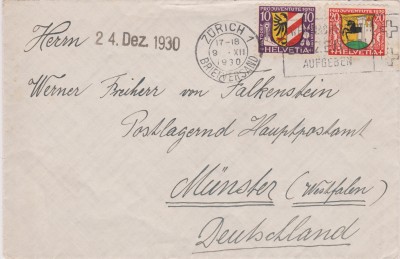 PRO JUVENTUTE 1930
10 10
HELVETIA
PRO JUVENTUTE 1930
20 20
HELVETIA
ZÜRICH
17-18
9.XII
1930
BRIEFVERSAND
AUFGEBEN
24. Dez. 1930
Herrn
Werner Freiherr von Falkenstein
Postlagernd Hauptpostamt
Münster (Westfalen)
Deutschland